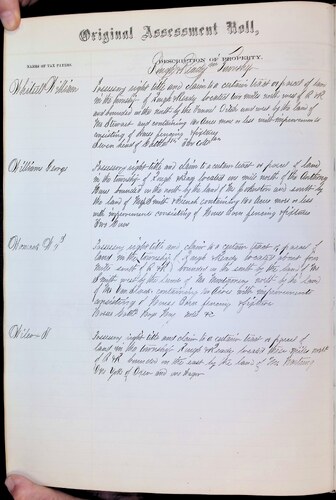 Original Assessment Roll,
NAMES OF TAX PAYERS. DESCRIPTION OF PROPERTY.
Rough & Ready Township
Whitcutt William Possessory right title and claim to a certain tract or parcel of land
in the township of Rough & Ready located two miles west of R & R
and bounded on the north by the Ditch and west by the land of
Stewart and containing acres more or less with improvements
consisting of House fencing & fixtures
Seven head of Cattle
Williams George Possessory right title and claim to a certain tract or parcel of land
in the township of Rough & Ready located one mile north of the Anthony
House bounded on the north by the land of Johnston and south by
the land of Smith ranch containing acres more or less
with improvements consisting of House Barn fencing & fixtures
Two Horses
Possessory right title and claim to a certain tract or parcel of
land in the township of Rough & Ready located about four
miles south of R & R bounded on the south by the land of
Smith west by the lands of Montgomery north by the land
of containing acres with improvements
consisting of House Barn fencing & fixtures
Horses Cattle Hogs Hay &c
Wilson Possessory right title and claim to a certain tract or parcel of
land in the township Rough & Ready located three miles west
of R & R bounded on the east by the land of
One Yoke of Oxen and one Wagon